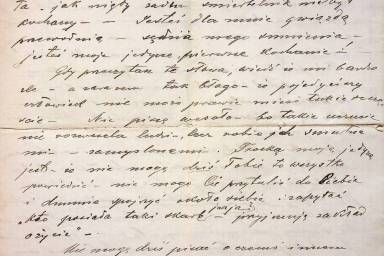 ta - jak nigdy żaden śmiertelnik nie był
kochany - - Jesteś dla mnie gwiazdą
przewodnią - sędzią mego sumienia -
jesteś moje jedyne, pierwsze kochanie! -
Gdy przeczytam te słowa, wieść o mi bardzo
źle - a zarazem tak błogo - iż pojedyńczy
człowiek nie może prawie mieć takie szczę
ście - Nie piszę wesoło - bo takie uczucie
nie rozwesela ludzi, lecz robi ich smutne
mi - zamyślonemi. Troską moją jedyną
jest - iż nie mogę dziś Tobie to wszystko
powiedzieć - nie mogę Cię przytulić do siebie
i dumnie spojrzeć około siebie i zapytać
"Kto posiada taki skarb - przyjmuję zakład
o życie" -
Nie mogę dziś pisać o czemś innem